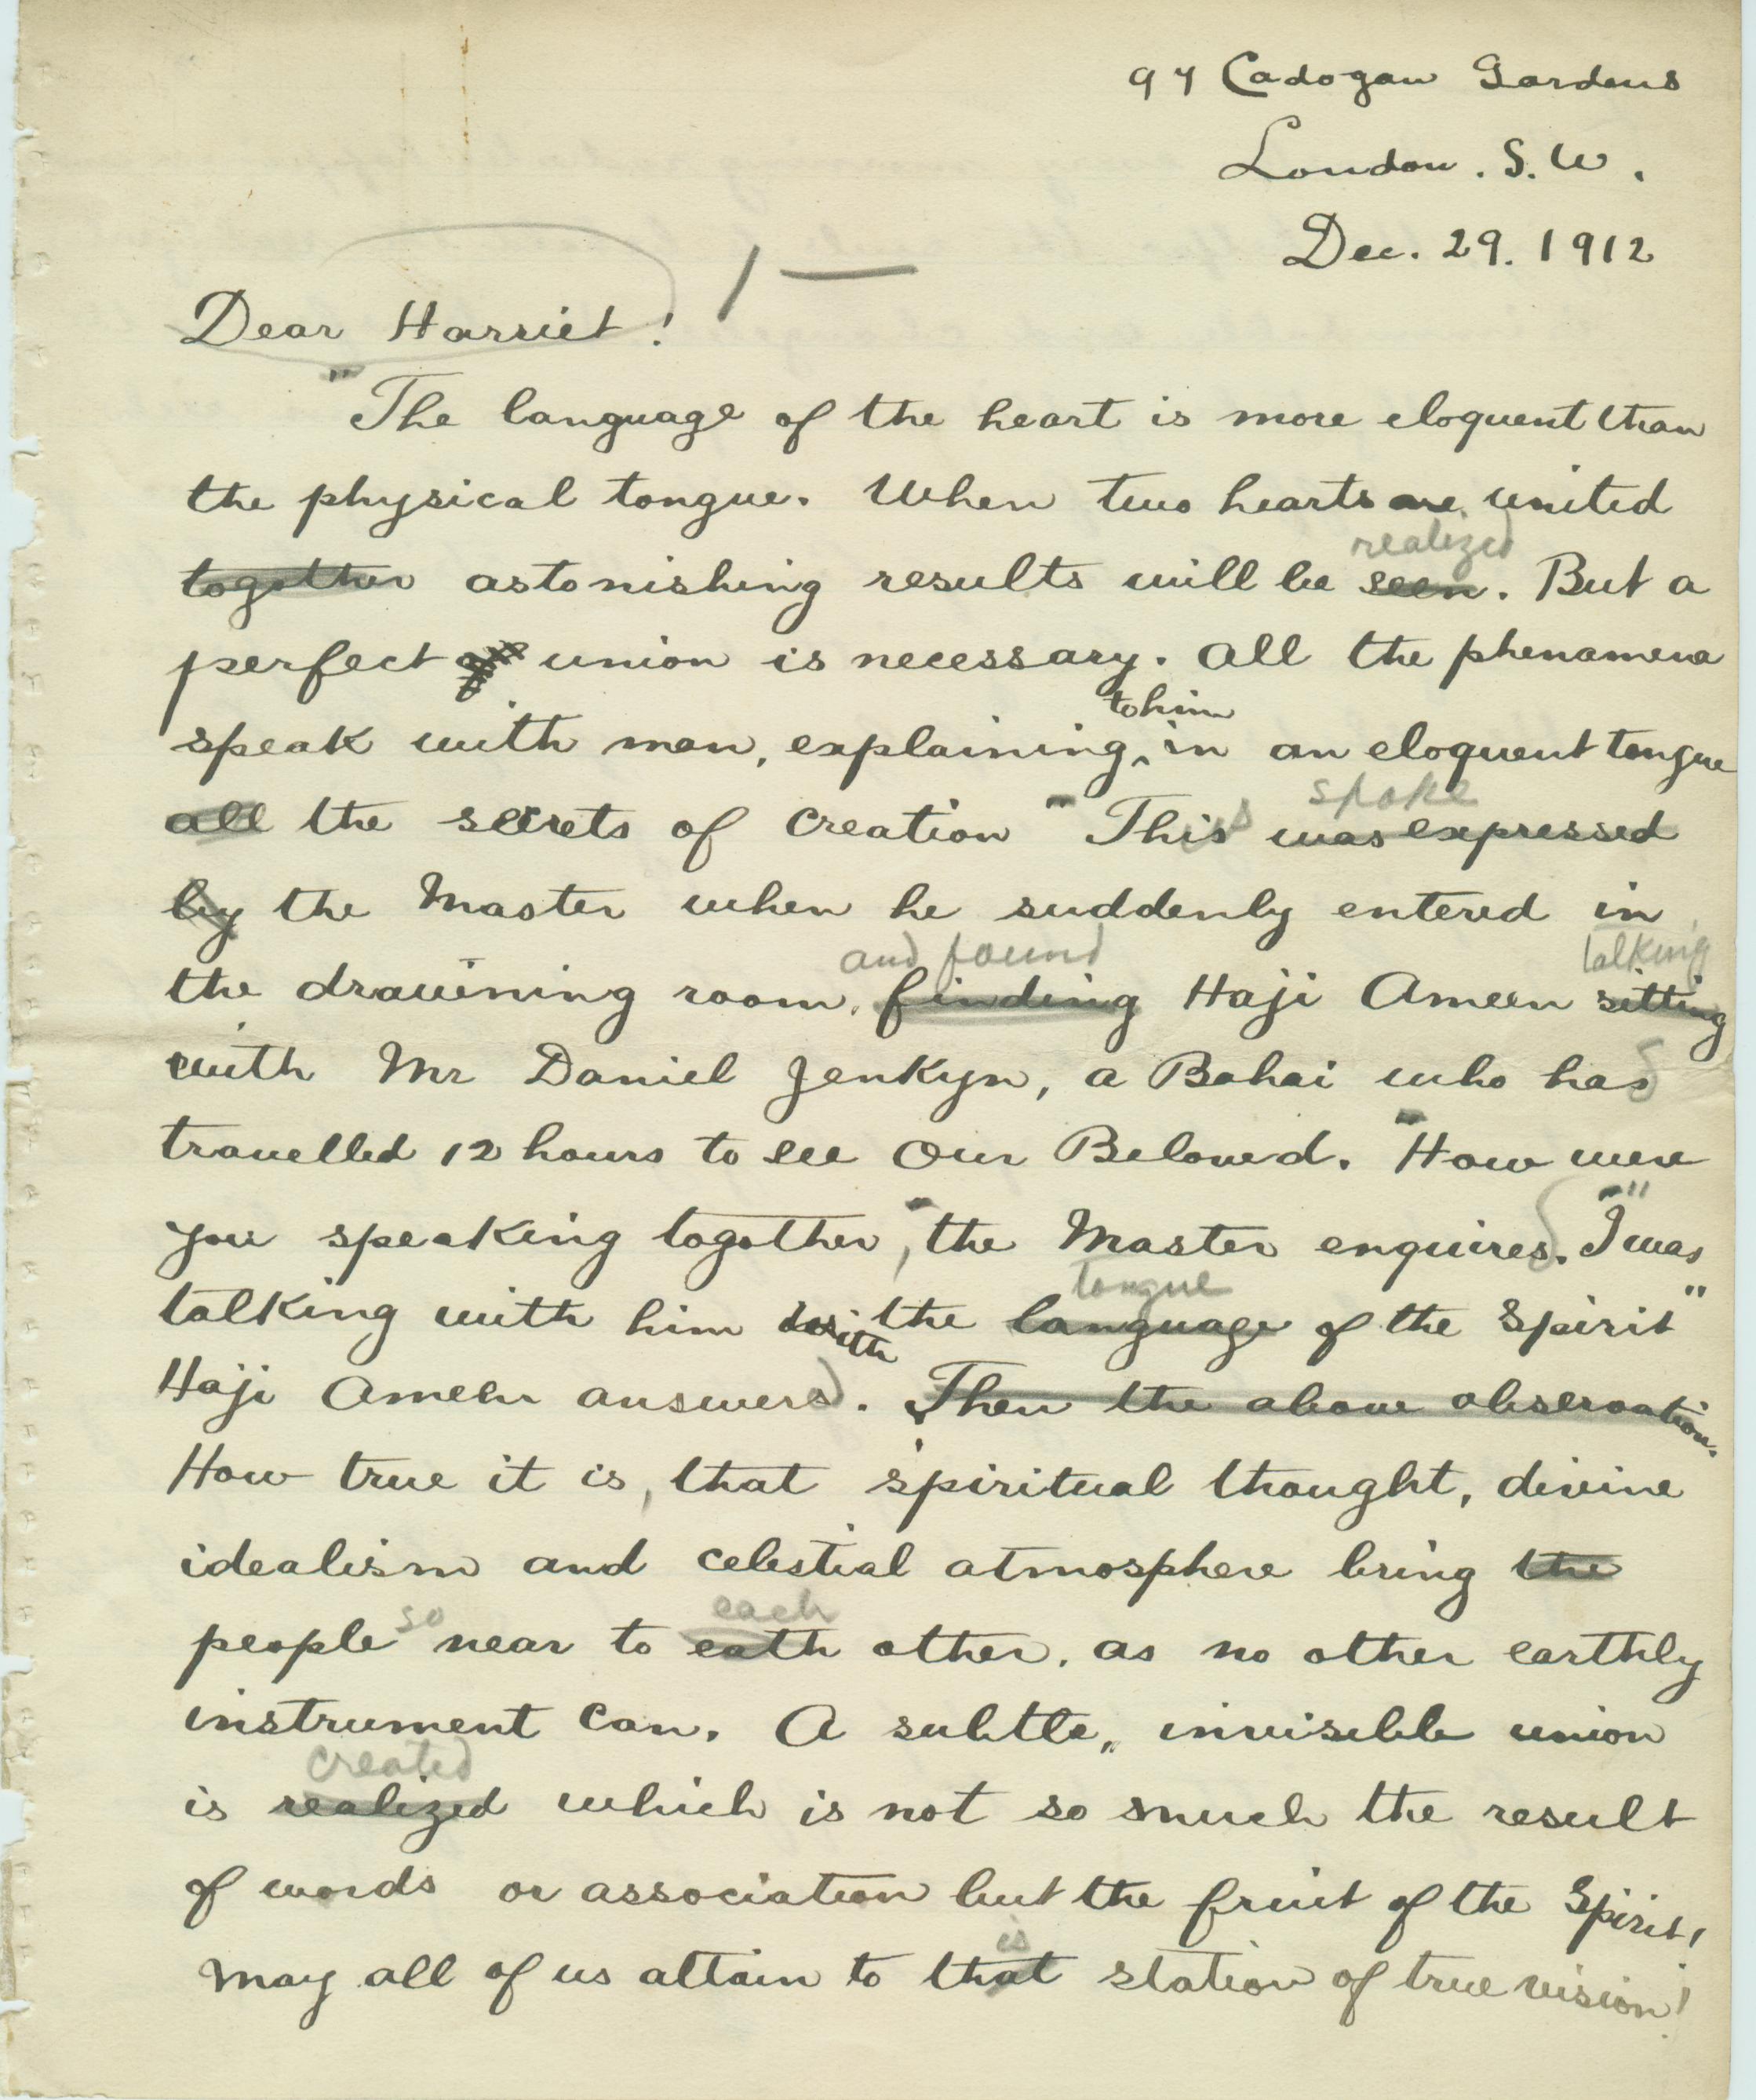 97 Cadogan Gardens
London. S. W.
Dec. 29. 1912
1 —
Dear Harriet!
"The language of the heart is more eloquent than
the physical tongue. When two hearts are united
realized
together astonishing results will be seen. But a
perfect union is necessary. All the phenamena
to him
speak with man, explaining in an eloquent tongue
spoke
all the secrets of Creation" This was expressed
by the Master when he suddenly entered in
and found talking
the drawining room, finding Haji Ameen sitting
with Mr Daniel Jenkyn, a Bahai who has
travelled 12 hours to see Our Beloved. "How were
you speaking together," the Master enquires. "I was
tongue
talking with him with the language of the Spirit"
Haji Ameen answers. Then the above observation.
How true it is, that spiritual thought, divine
idealism and celestial atmosphere bring the
so each
people near to eath other, as no other earthly
instrument can. A subtle, invisible union
created
is realized which is not so much the result
of words or association but the fruit of the Spirit,
is
May all of us attain to that station of true vision!